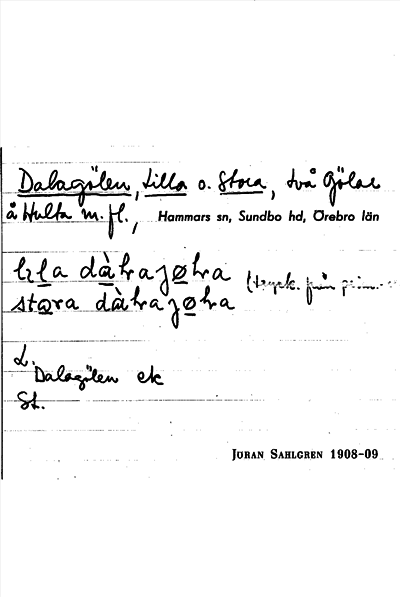 Dalagölen, Lilla o. Stora, två Gölar
å Hulta m. fl., Hammars sn, Sundbo hd, Örebro län
dàƚɑjøƚɑ
stɷra dàƚɑjøƚɑ
L.
Dalagölen ek
St.
JÖRAN SAHLGREN 1908-09